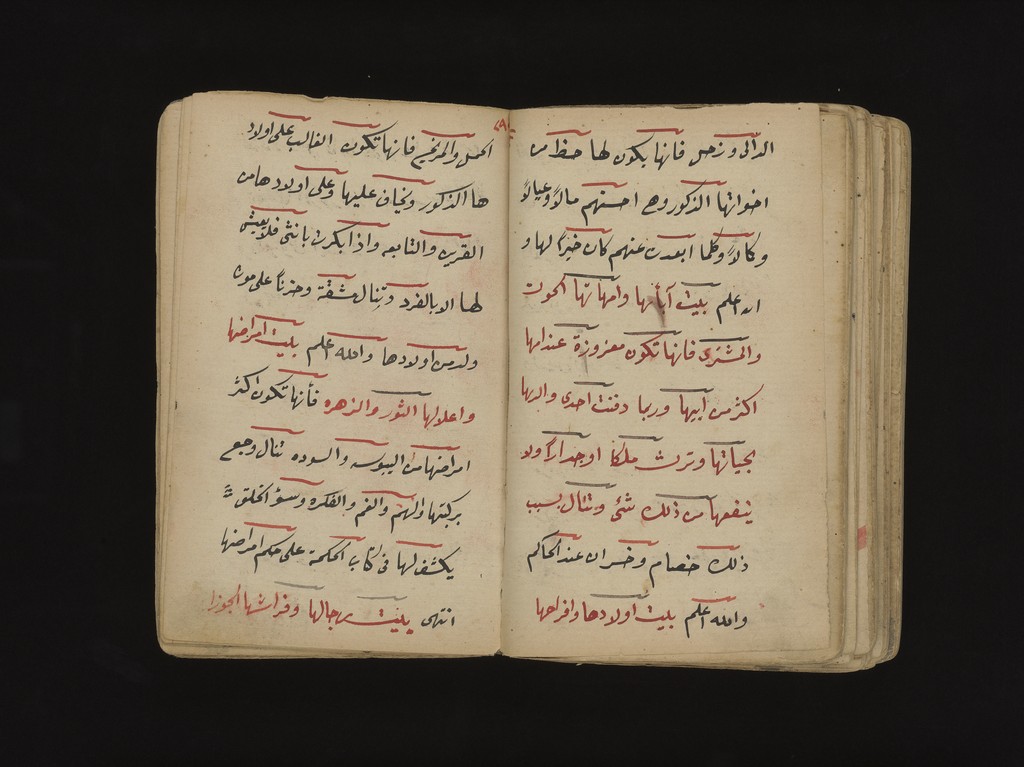 الدالى وزحل فانها يكون لها حظ من
اخواتها الذكور وهى احسنهم مالاً وعيالاً
وكالاً وكلما ابعدت عنهم كان خيراً لها و
الله اعلم بيت آبائها وامهاتها الحوت
والمشترى فانها تكون معزوزة عند امها
اكثر من ابيها وربما دفنت احدى والديها
بحياتها وترث ملكا او جداراً ولا
ينفعها من ذلك شئ وتنال بسبب
ذلك خصام وخسران عند الحاكم
والله اعلم بيت اولادها وافراحها
٢٩
الحمل والمريخ فانها تكون الغالب على اولاد
ها الذكور ويخاف عليها وعلى اولادها من
القرينه والتابعه واذا بكرت بانثى فلا يعيش
لها الا بالفرد وتنال مشقة وحزناً على موت
ولد من اولادها والله اعلم بيت امراضها
واعلالها الثور والزهره فأنها تكون اكثر
امراضها من اليبوسه والسوده تنال وجع
بركبتها والهم والغم والفكره وسؤ الخلق
يكشف لها فى كتاب الحكمة على حكم امراضها
انتهى بيت رجالها وفراشها الجوزا